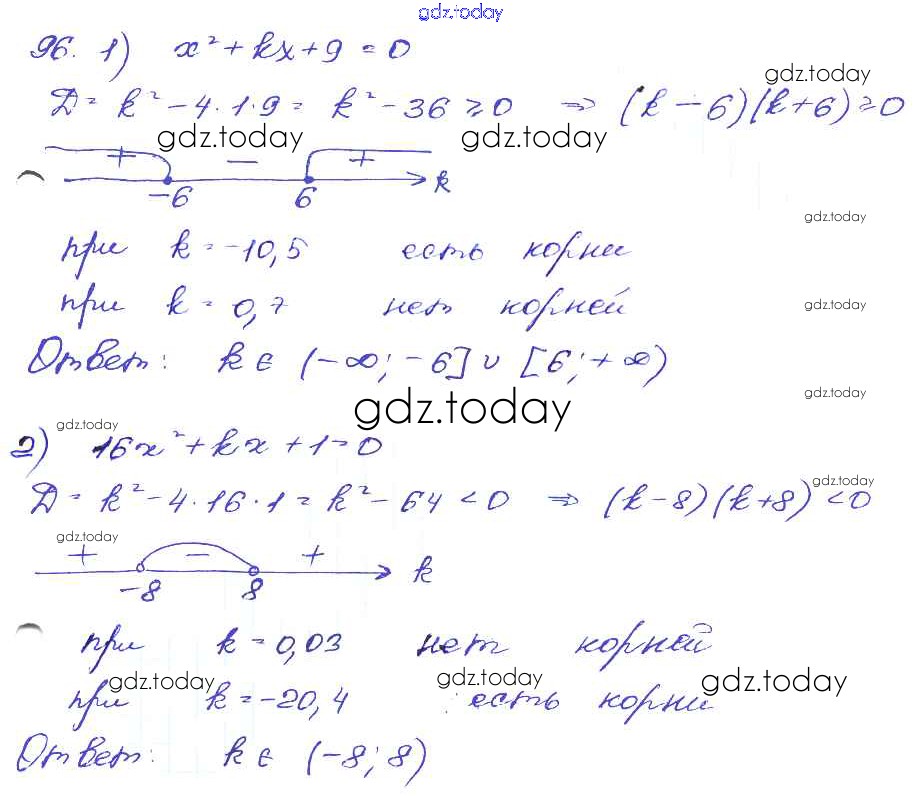 gdz.today
96. 1) x² + kx + 9 = 0
gdz.today
D = k² - 4·1·9 = k² - 36 ≥ 0 ⇒ (k - 6)(k + 6) ≥ 0
gdz.today gdz.today
+ − +
-6 6 k
gdz.today
при k = -10,5 есть корни
при k = 0,7 нет корней
gdz.today
Ответ: k ∈ (-∞; -6] ∪ [6; +∞)
gdz.today gdz.today
gdz.today
2) 16x² + kx + 1 = 0
gdz.today
D = k² - 4·16·1 = k² - 64 < 0 ⇒ (k - 8)(k + 8) < 0
gdz.today
+ − +
-8 8 k
при k = 0,03 нет корней
gdz.today gdz.today gdz.today
при k = -20,4 есть корни
Ответ: k ∈ (-8; 8)